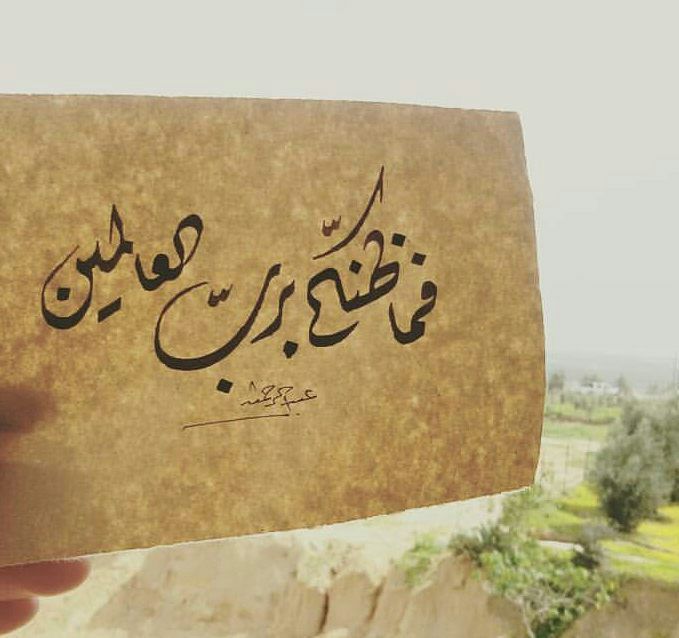 فما ظنّكم بربّ العالمين